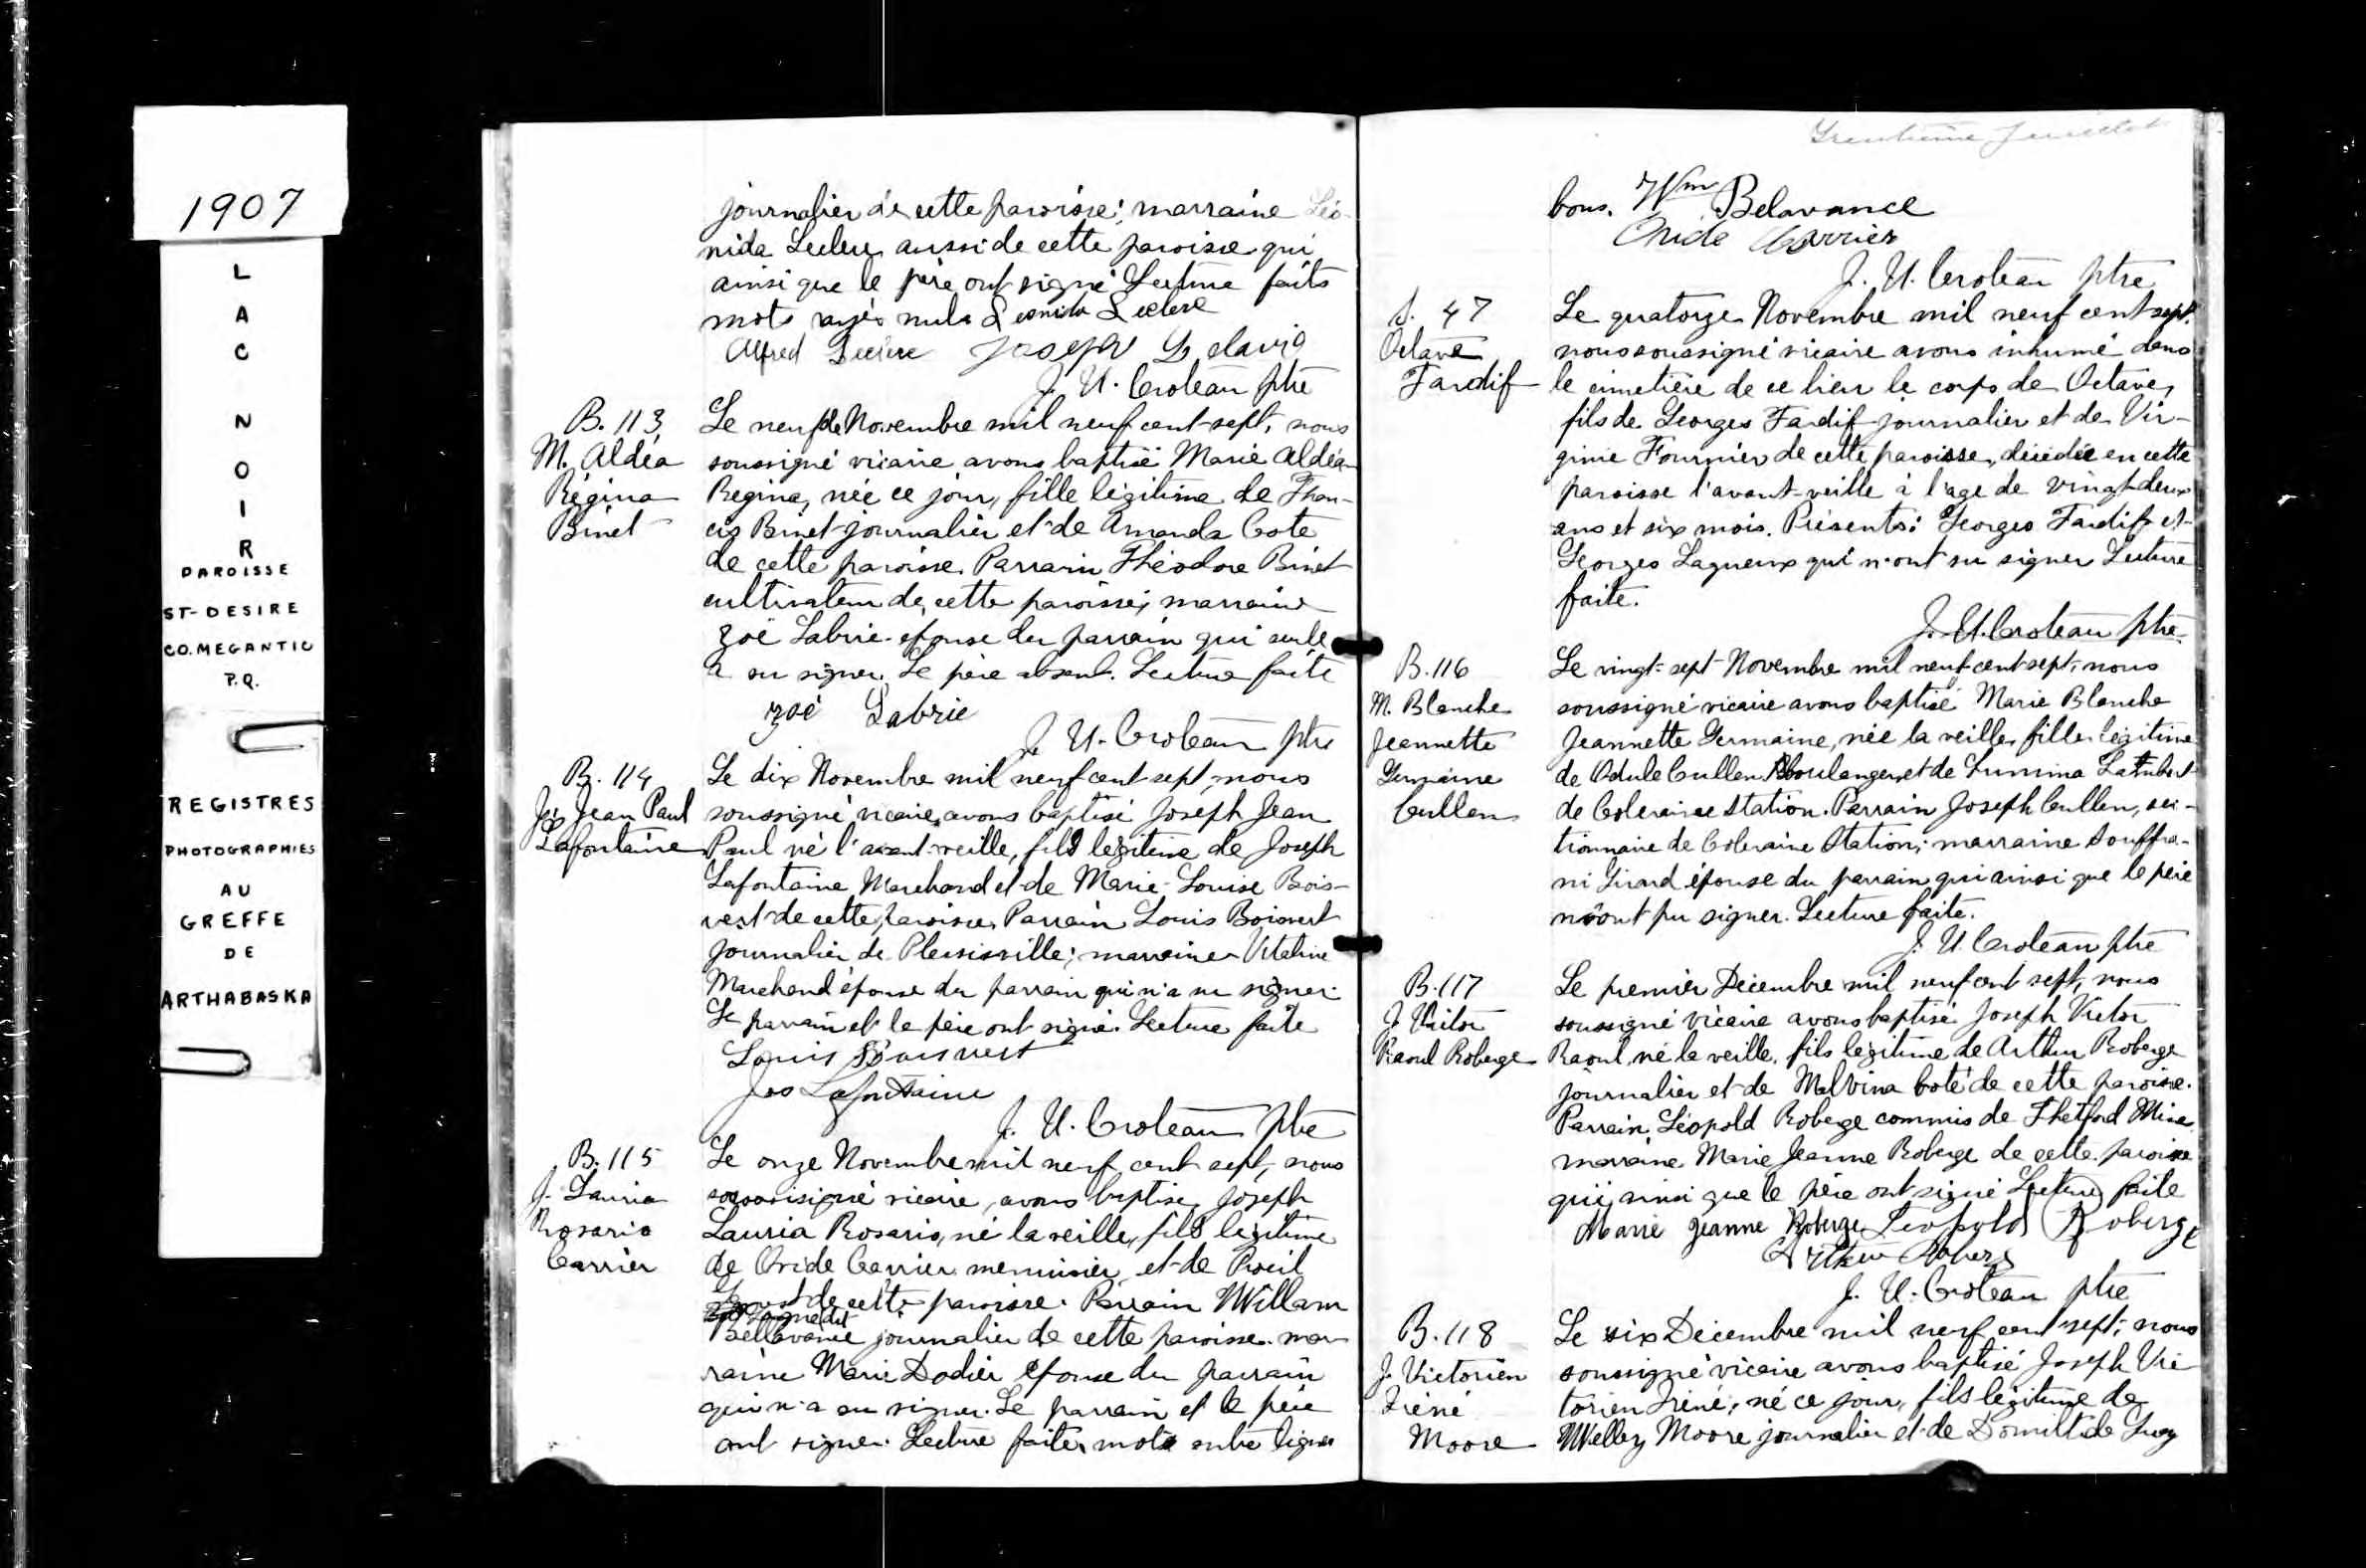 1907
L
A
C
N
O
I
R
PAROISSE
ST-DESIRE
CO. MEGANTIC
P.Q.
REGISTRES
PHOTOGRAPHIES
AU
GREFFE
DE
ARTHABASKA
journalier de cette paroisse; marraine Léo-
nida Leclerc aussi de cette paroisse qui
ainsi que le père ont signé Lecture faite
mots rayés nuls Leonida Leclerc
Alfred Leclerc Joseph
J. U. Croteau ptre
B. 113
M. Aldéa
Régina
Binet
Le neuf de Novembre mil neuf cent sept, nous
soussigné vicaire avons baptisé Marie Aldéa
Regina, née ce jour, fille légitime de Fran-
cis Binet journalier et de Amanda Cote
de cette paroisse. Parrain Théodore Binet
cultivateur de cette paroisse; marraine
Zoé Labrie épouse du parrain qui seule
a su signer. Le père absent. Lecture faite
Zoé Labrie
J. U. Croteau ptre
B. 114
Jos Jean Paul
Lafontaine
Le dix Novembre mil neuf cent sept, nous
soussigné vicaire, avons baptisé Joseph Jean
Paul né l'avant-veille, fils legitime de Joseph
Lafontaine Marchand et de Marie-Louise Bois-
vert de cette paroisse Parrain Louis Boisvert
journalier de Plessisville; marraine Vitaline
Marchand épouse du parrain qui n'a su signer.
Le parrain et le père ont signé. Lecture faite
Louis Boisvert
Jos Lafontaine
J. U. Croteau ptre
B. 115
J. Lauria
Rosario
Carrier
Le onze Novembre mil neuf cent sept, nous
soussigné vicaire, avons baptisé Joseph
Lauria Rosario, né la veille, fils legitime
de Ovide Carrier menuisier et de
de cette paroisse. Parrain William
Gagné dit
Bellavance journalier de cette paroisse. mar
raine Marie Dodier épouse du parrain
qui n'a su signer. Le parrain et le père
ont signer. Lecture faite, mots entre lignes
Trentième feuillet
bons. Wm Belavance
Ovide Carrier
J. U. Croteau ptre
S. 47
Octave
Tardif
Le quatorze Novembre mil neuf cent sept.
nous soussigné vicaire avons inhumé dans
le cimetière de ce lieu le corps de Octave,
fils de Georges Tardif journalier et de Vir-
ginie Fournier de cette paroisse, décédée en cette
paroisse l'avant-veille à l'age de vingt-deux
ans et six mois. Présents: Georges Tardif et
Georges Lagueux qui n'ont su signer Lecture
faite.
J. U. Croteau ptre
B. 116
M. Blanche
Jeannette
Germaine
Cullen
Le vingt-sept Novembre mil neuf cent sept, nous
soussigné vicaire avons baptisé Marie Blanche
Jeannette Germaine, née la veille, fille legitime
de Odule Cullen Boulanger, et de Lumina Lambert
de Coleraine Station. Parrain Joseph Cullen, sec-
tionnaire de Coleraine Station; marraine Souffra-
ni Girard épouse du parrain qui ainsi que le père
n'ont pu signer. Lecture faite.
J. U. Croteau ptre
B. 117
J. Victor
Raoul Roberge
Le premier Décembre mil neuf cent sept, nous
soussigné vicaire avons baptisé Joseph Victor
Raoul, né la veille, fils légitime de Arthur Roberge
journalier et de Malvina Coté de cette paroisse.
Parrain Léopold Roberge commis de Thetford Mines
marraine Marie Jeanne Roberge de cette paroisse
qui, ainsi que le père ont signé Lecture faite
Marie Jeanne Roberge Leopold Roberge
Arthur Roberge
J. U. Croteau ptre
B. 118
J. Victorien
Iréné
Moore
Le six Décembre mil neuf cent sept, nous
soussigné vicaire avons baptisé Joseph Vic
torien Iréné, né ce jour, fils légitime de
Welley Moore journalier et de Domitilde